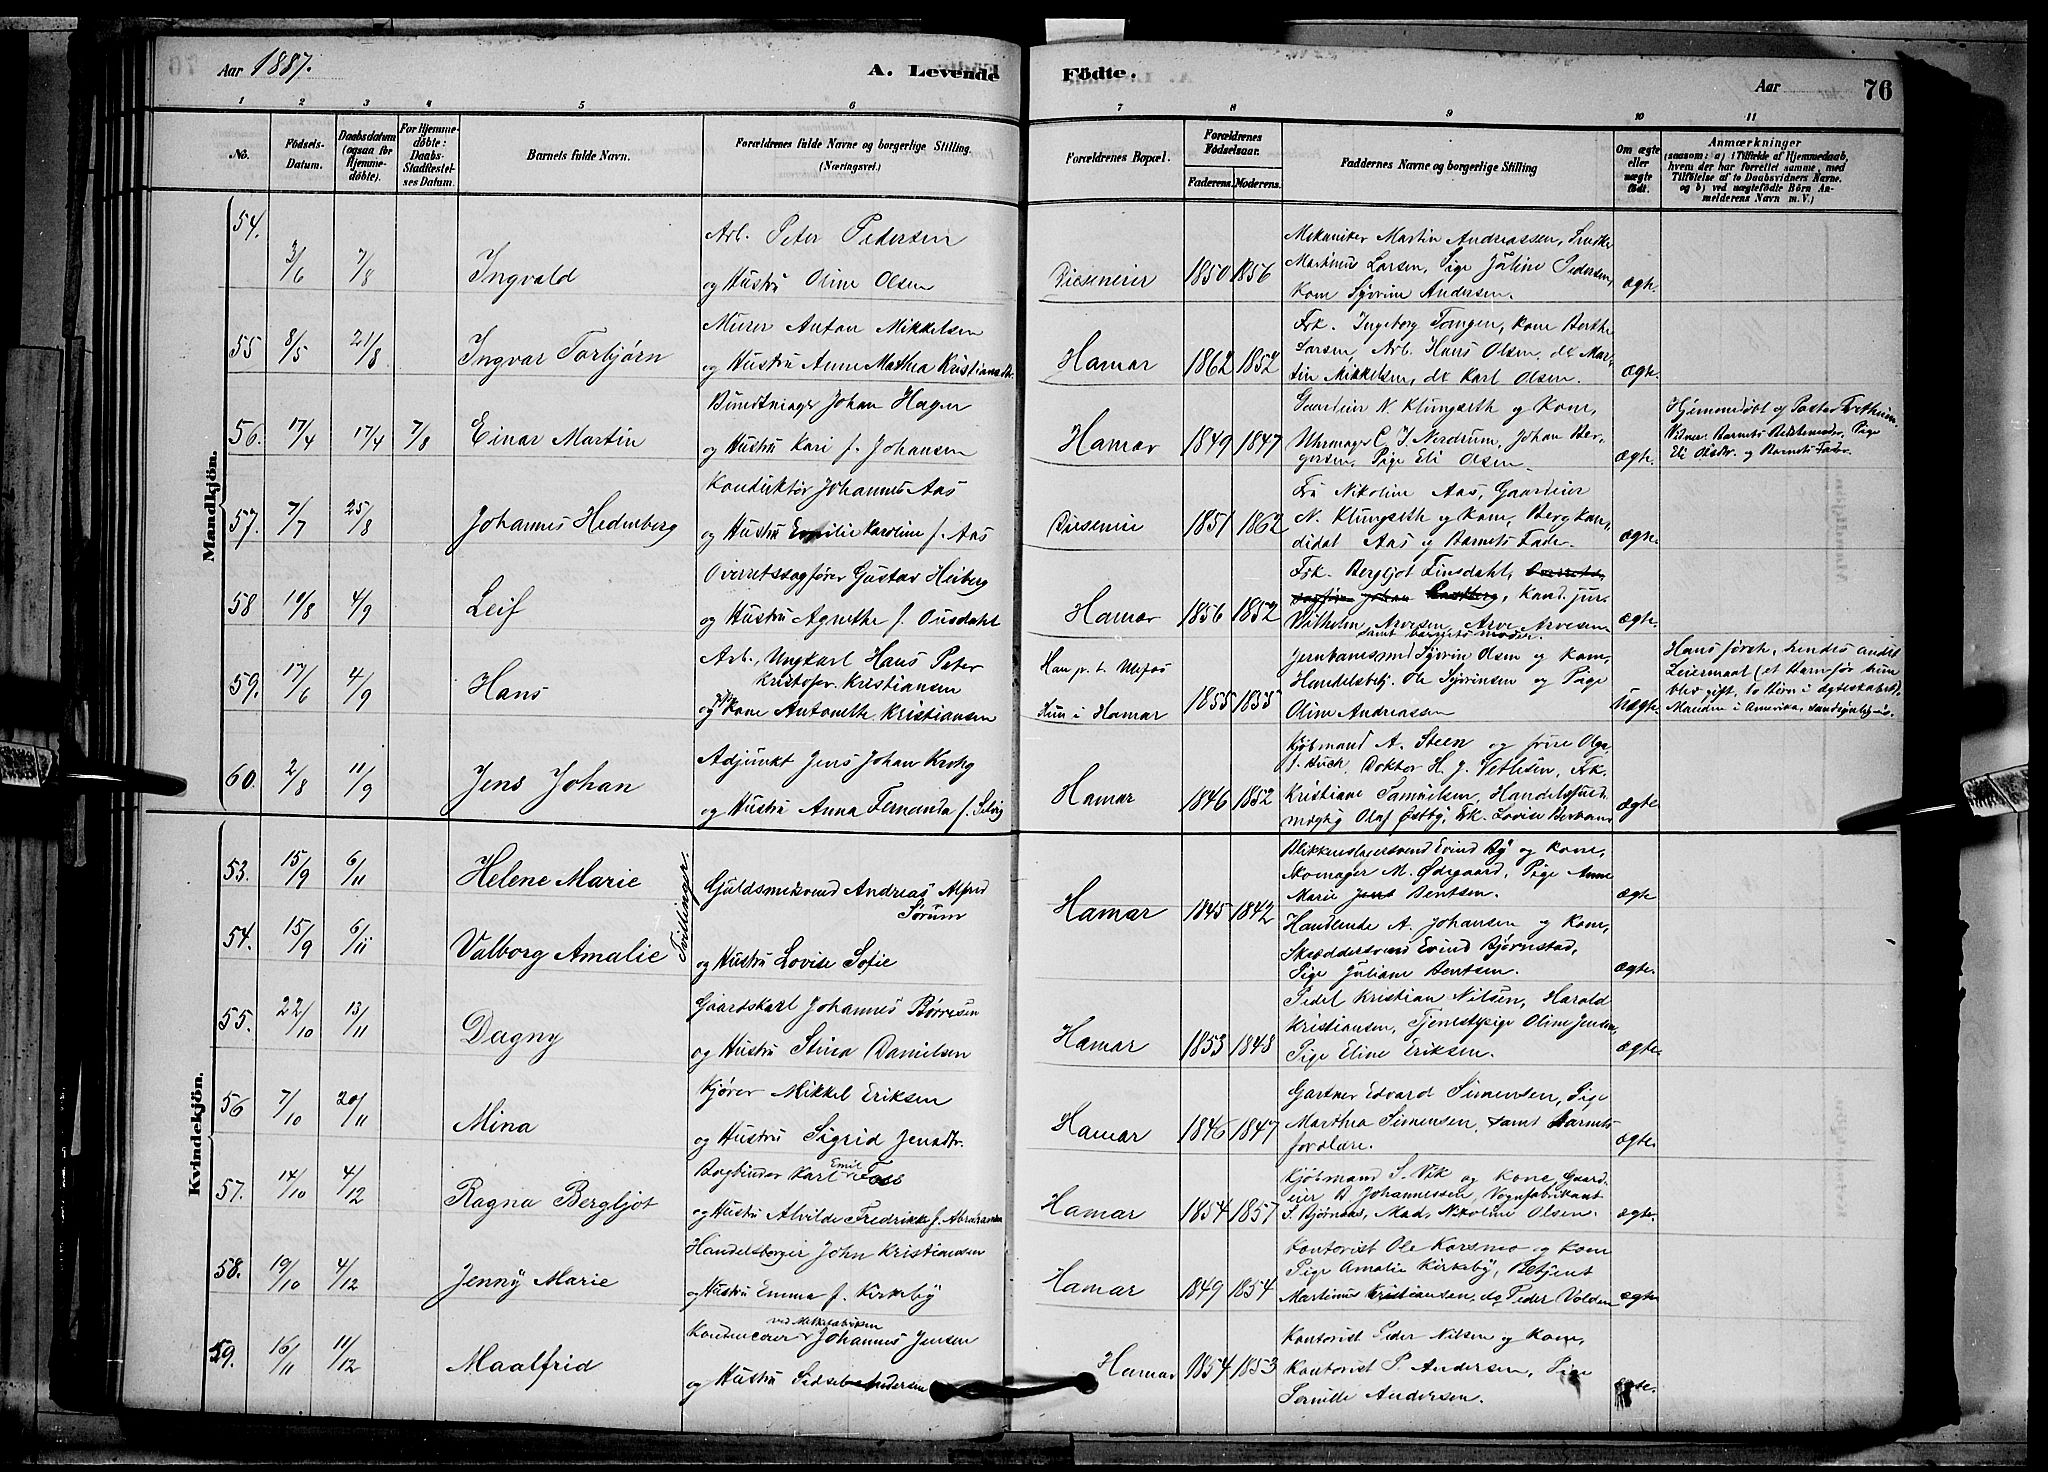 Aar 1887.
A. Levende
Födte.
Aar
76
1 2 3 4 5 6 7 8 9 10 11
No.
Födsels-Datum.
Daabsdatum (ogsaa for Hjemme-döbte).
For Hjemme-döbte: Daabs-Stadfæstel-ses Datum.
Barnets fulde Navn.
Forældrenes fulde Navne og borgerlige Stilling. (Næringsvei.)
Forældrenes Bopæl.
Forældrenes Födselsaar.
Faderens. Moderens.
Faddernes Navne og borgerlige Stilling
Om ægte eller uægte födt.
Anmærkninger
(saasom: a) i Tilfælde af Hjemmedaab, hvem der har forrettet samme, med Tilföielse af to Daabsvidners Navne. og b) ved uægtefödte Börn An-melderens Navn m. V.)
Mandkjön.
54.
3/6 7/8 Ingvald
Arb. Peter Pedersen
og Hustru Oline Olsen
Diseneier 1850 1856
Mekaniker Martin Andreassen,
Martinus Larsen, Pige Joline Pedersen,
Kone Syverine Andersen.
ægte.
55 8/5 21/8 Ingvar Torbjørn
Murer Anton Mikkelsen
og Hustru Anne Mathea Kristiansdtr.
Hamar 1862 1852
Frk. Ingeborg Tomgen, Kone Berthe
Larsen, Arb. Hans Olsen, do Mar-
tin Mikkelsen, do Karl Olsen.
ægte.
56. 17/4 17/4 7/8 Einar Martin
Bundtmager Johan Hagen
og Hustru Kari f. Johansen
Hamar 1849 1847
Gaardeier N. Klungseth og Kone,
Uhrmager C. J. Nordrum, Johan Ber-
gersen, Pige Eli Olsen.
ægte.
Hjemmedøbt af Pastor
Vidner: Barnets Bestemoder, Pige
Eli Olsdtr. og Barnets Fader.
57. 7/7 25/8 Johannes Hedenberg
Konduktør Johannes Aas
og Hustru Emilie Karoline f. Aas
Diseneie 1851 1862
Fru Nikoline Aas, Gaardeier
N. Klungseth og Kone, Bergkan-
didat Aas og Barnets Fader.
ægte.
58 10/8 4/9 Leif
Overretssagfører Gustav Heiberg
og Hustru Agnethe f. Ousdahl
Hamar 1856 1852
Frk. Bergljot Finsdahl, Overrets-
sagfør Johan, Kand. jur.
Vilhelm Arvesen, Arve Arvesen
samt barnets moder.
ægte
59. 17/6 4/9 Hans
Arb., Ungkarl Hans Peter
Kristofer Kristiansen
og Kone Antonette Kristiansen
Han p. t. Ulefos
Hun i Hamar
1855 1855
Jernbanesmed Syverin Olsen og Kone,
Handelsbetj. Ole Syverinsen og Pige
Oline Andreassen
Uægte.
Hans første, hendes andet
Leiermaal (et Barn før hun
blev gift, to Børn i Ægteskabet).
Manden i Amerika, sandsynligvis.
60. 2/8 11/9 Jens Johan
Adjunkt Jens Johan Krohg
og Hustru Anna Fernanda f. Selvig
Hamar 1846 1852
Kjøbmand A. Steen og frue Olga
f. Buch, Doktor H. J. Vetlesen, Frk.
Kristiane Samuelsen, Handelsfuld-
mægtig Olaf Østby, Frk. Lovise
ægte
Kvindekjön.
53. 15/9 6/11 Helene Marie
Tvillinger.
Guldsmedsvend Andreas Alfred
Sørum
Hamar 1845 1842
Blikkenslagersvend Evind By og Kone,
Skomager M. Ødegaard, Pige Anne
Marie Bentsen.
ægte
54. 15/9 6/11 Valborg Amalie
og Hustru Lovise Sofie
Handlende A. Johansen og Kone,
Skræddersvend Evind Bjørnstad,
Pige Juliane Bentsen.
ægte.
55. 22/10 13/11 Dagny
Gaardskarl Johannes Børresen
og Hustru Stina Danielsen
Hamar 1853 1848
Pedel Kristian Nilsen, Harald
Kristiansen, Tjenestepige Oline Jensen,
Pige Eline Eriksen.
ægte
56 7/10 20/11 Mina
Kjører Mikkel Eriksen
og Hustru Sigrid Jensdtr.
Hamar 1846 1847
Gartner Edvard Simensen, Pige
Marthea Simensen, samt Barnets
forældre.
ægte.
57. 14/10 4/12 Ragna Bergljot
Bogbinder Karl Emil Foss
og Hustru Alvilde Fredrikke f. Abrahamsen
Hamar 1854 1857
Kjøbmand S. Vik og Kone, Gaard-
eier B Johannessen, Vognfabrikant
S. Bjørnaas, Mad. Nikoline Olsen.
ægte.
58. 19/10 4/12 Jenny Marie
Handelsborger John Kristiansen
og Hustru Emma f. Kirkeby
Hamar 1849 1854
Kontorist Ole Korsmo og Kone
Pige Amalie Kirkeby, Betjent
Martinus Kristiansen, do Peder Volden
ægte
59. 16/11 11/12 Maalfrid
Kondencerer ved Melkefabriken Johannes Jensen
og Hustru Sidsel Andersen
Hamar 1854 1853
Kontorist Peder Nilsen og Kone,
Kontorist P. Andersen, Pige
Pernille Andersen.
ægte.